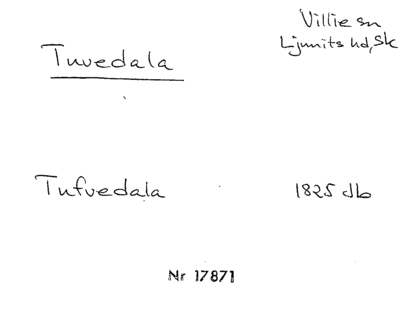 Tuvedala
Villie sn
Ljunits hd, Sk
Tufvedala
1825 db
Nr 17871